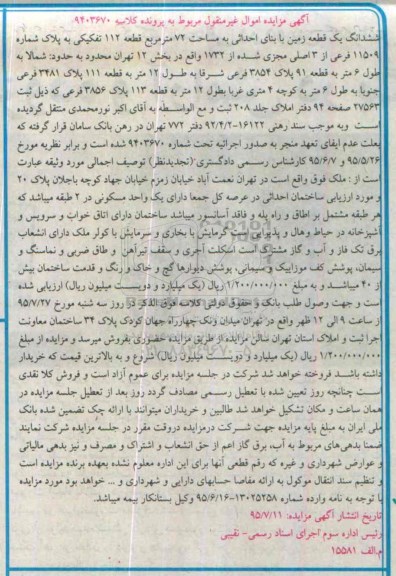 آگهی مزایده اموال غیرمنقول مربوط به پرونده کلاسه ۹۴۰۳۶۷۰
ششدانگ یک قطعه زمین با بنای احداثی به مساحت ۷۲ مترمربع قطعه ۱۱۲ تفکیکی به پلاک شماره
۱۱۵۰۹ فرعی از ۳ اصلی مجزی شده از ۱۷۳۲ واقع در بخش ۱۲ تهران محدود به حدود: شمالا به
طول ۶ متر به قطعه ۹۱ پلاک ۳۸۵۴ فرعی شرقا به طول ۱۲ متر به قطعه ۱۱۱ پلاک ۳۴۸۱ فرعی
جنوبا به طول ۶ متر به کوچه ۴ متری غربا بطول ۱۲ متر به قطعه ۱۱۳ پلاک ۳۸۵۶ فرعی که ذیل ثبت
۲۷۵۶۳ صفحه ۹۴ دفتر املاک جلد ۲۰۸ ثبت و مع الواسطه به آقای اکبر نورمحمدی منتقل گردیده
است وبه موجب سند رهنی ۱۶۱۲۲-۹۲/۴/۲ دفتر ۷۷۲ تهران در رهن بانک سامان قرار گرفته که
بعلت عدم ایفای تعهد منجر به صدور اجرائیه تحت شماره ۹۴۰۳۶۷۰ شده است و برابر نظریه مورخ
۹۵/۵/۲۶ و ۹۵/۶/۷ کارشناس رسمی دادگستری (تجدیدنظر) توصیف اجمالی مورد وثیقه عبارت
است از : ملک فوق واقع است در تهران نعمت آباد خیابان زمزم خیابان جهاد کوچه باجلان پلاک ۲۰
و مورد ارزیابی ساختمان احداثی در عرصه کل جمعا دارای یک واحد مسکونی در ۲ طبقه میباشد که
هر طبقه مشتمل بر اطاق و راه پله و فاقد آسانسور میباشد ساختمان دارای اتاق خواب و سرویس و
آشپزخانه در حیاط وهال و پذیرایی است گرمایش با بخاری و سرمایش با کولر ملک دارای انشعاب
برق تک فاز و آب و گاز مشترک است اسکلت آجری و سقف تیرآهن و طاق ضربی و نماسنگ و
سیمان، پوشش کف موزاییک و سیمانی، پوشش دیوارها گچ و خاک و رنگ و قدمت ساختمان بیش
از ۴۰ میباشد و به مبلغ ۱/۲۰۰/۰۰۰/۰۰۰ ریال (یک میلیارد و دویست میلیون ریال) ارزیابی شده
است و جهت وصول طلب بانک و حقوق دولتی کلاسه فوق الذکر در روز سه شنبه مورخ ۹۵/۷/۲۷
از ساعت ۹ الی ۱۲ ظهر واقع در تهران میدان ونک چهارراه جهان کودک پلاک ۳۴ ساختمان معاونت
اجرا ثبت و املاک استان تهران سالن مزایده از طریق مزایده حضوری بفروش میرسد و مزایده از مبلغ
۱/۲۰۰/۰۰۰/۰۰۰ ریال (یک میلیارد و دویست میلیون ریال) شروع و به بالاترین قیمت که خریدار
داشته باشد فروخته خواهد شد شرکت در جلسه مزایده برای عموم آزاد است و فروش کلا نقدی
است چنانچه روز تعیین شده با تعطیل رسمی مصادف گردد روز بعد از تعطیل جلسه مزایده در
همان ساعت و مکان تشکیل خواهد شد طالبین و خریداران میتوانند با ارائه چک تضمین شده بانک
ملی ایران به مبلغ پایه مزایده جهت شرکت درمزایده دروقت مقرر در جلسه مزایده شرکت نمایند
ضمنا بدهی‌های مربوط به آب، برق گاز اعم از حق انشعاب و اشتراک و مصرف و نیز بدهی مالیاتی
و عوارض شهرداری و غیره که رقم قطعی آنها برای این اداره معلوم نشده بعهده برنده مزایده است
و تنظیم سند انتقال موکول به ارائه مفاصا حسابهای دارایی و شهرداری و ... خواهد بود مورد مزایده
با توجه به نامه وارده شماره ۱۳۰۲۵۲۵۸-۹۵/۶/۱۶ وکیل بستانکار بیمه میباشد.
تاریخ انتشار آگهی مزایده: ۹۵/۷/۱۱
رئیس اداره سوم اجرای اسناد رسمی- نقیبی
م.الف ۱۵۵۸۱